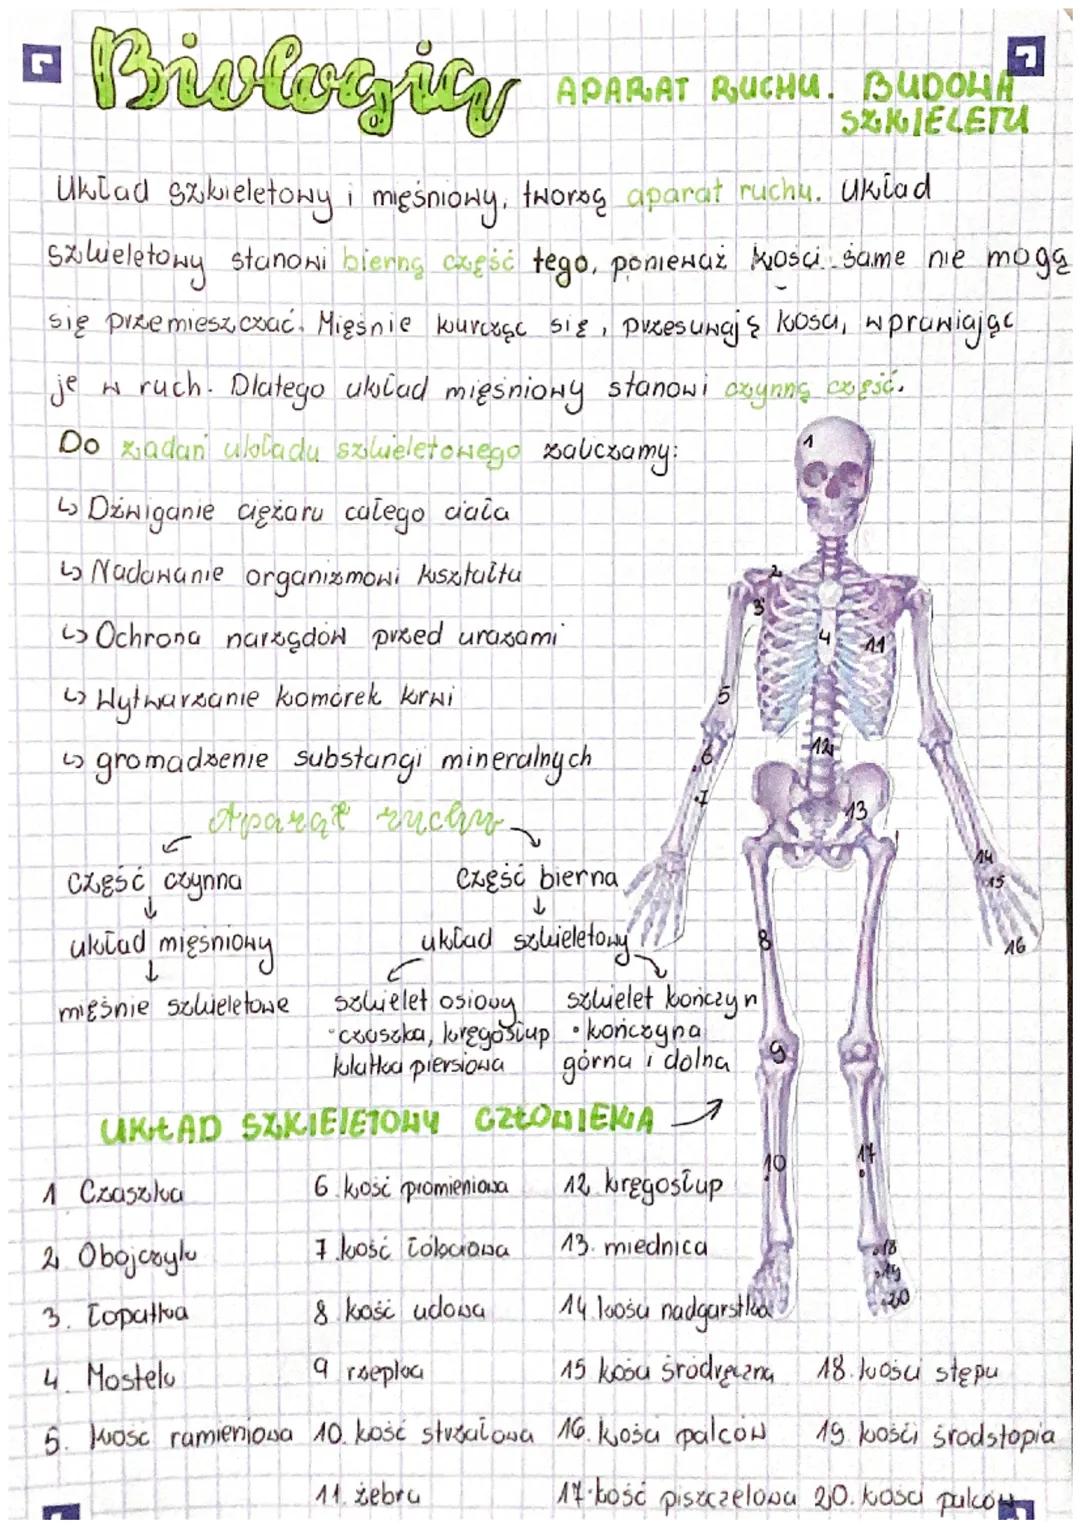 Biologia
APARAT RUCHU. BUDOWA
SZKIELETU
Układ szkieletowy i mięśniowy, tworzą aparat ruchu. Układ
szkieletowy stanowi bierną część tego, ponieważ kości same nie mogą
się przemieszczać. Mięśnie kurcząc się, przesuwają kości, wprawiając
je w ruch. Dlatego układ mięśniowy stanowi czynną część.
Do zadań układu szkieletowego zaliczamy:
↳ Dźwiganie ciężaru całego ciała
↳ Nadawanie organizmowi kształtu
↳ Ochrona narządów przed urazami
↳ Wytwarzanie komórek krwi
↳ gromadzenie substancji mineralnych
Aparat ruchu
część czynna
część bierna
↓ ↓
układ mięśniowy
układ szkieletowy
↓
mięśnie szkieletowe
szkielet osiowy
szkielet kończyn
•czaszka, kręgosłup
• kończyna
klatka piersiowa
górna i dolna
UKŁAD SZKIELETOWY CZŁOWIEKA
1 Czaszka
6 kość promieniowa
12 kręgosłup
2 Obojczyk
7 kość łokciowa
13. miednica
3. Łopatka
8 kość udowa
14 kości nadgarstka
4. Mostek
9 rzepka
15 kości śródręczna
18. kości stępu
5. kość ramieniowa
10. kość strzałowa
16. kości palców
19. kości śródstopia
11. żebra
17 kość piszczelowa
20. kości palców
1
2
3
4
11
5
12
6
7
13
14
15
8
16
9
17
10
18
19
20